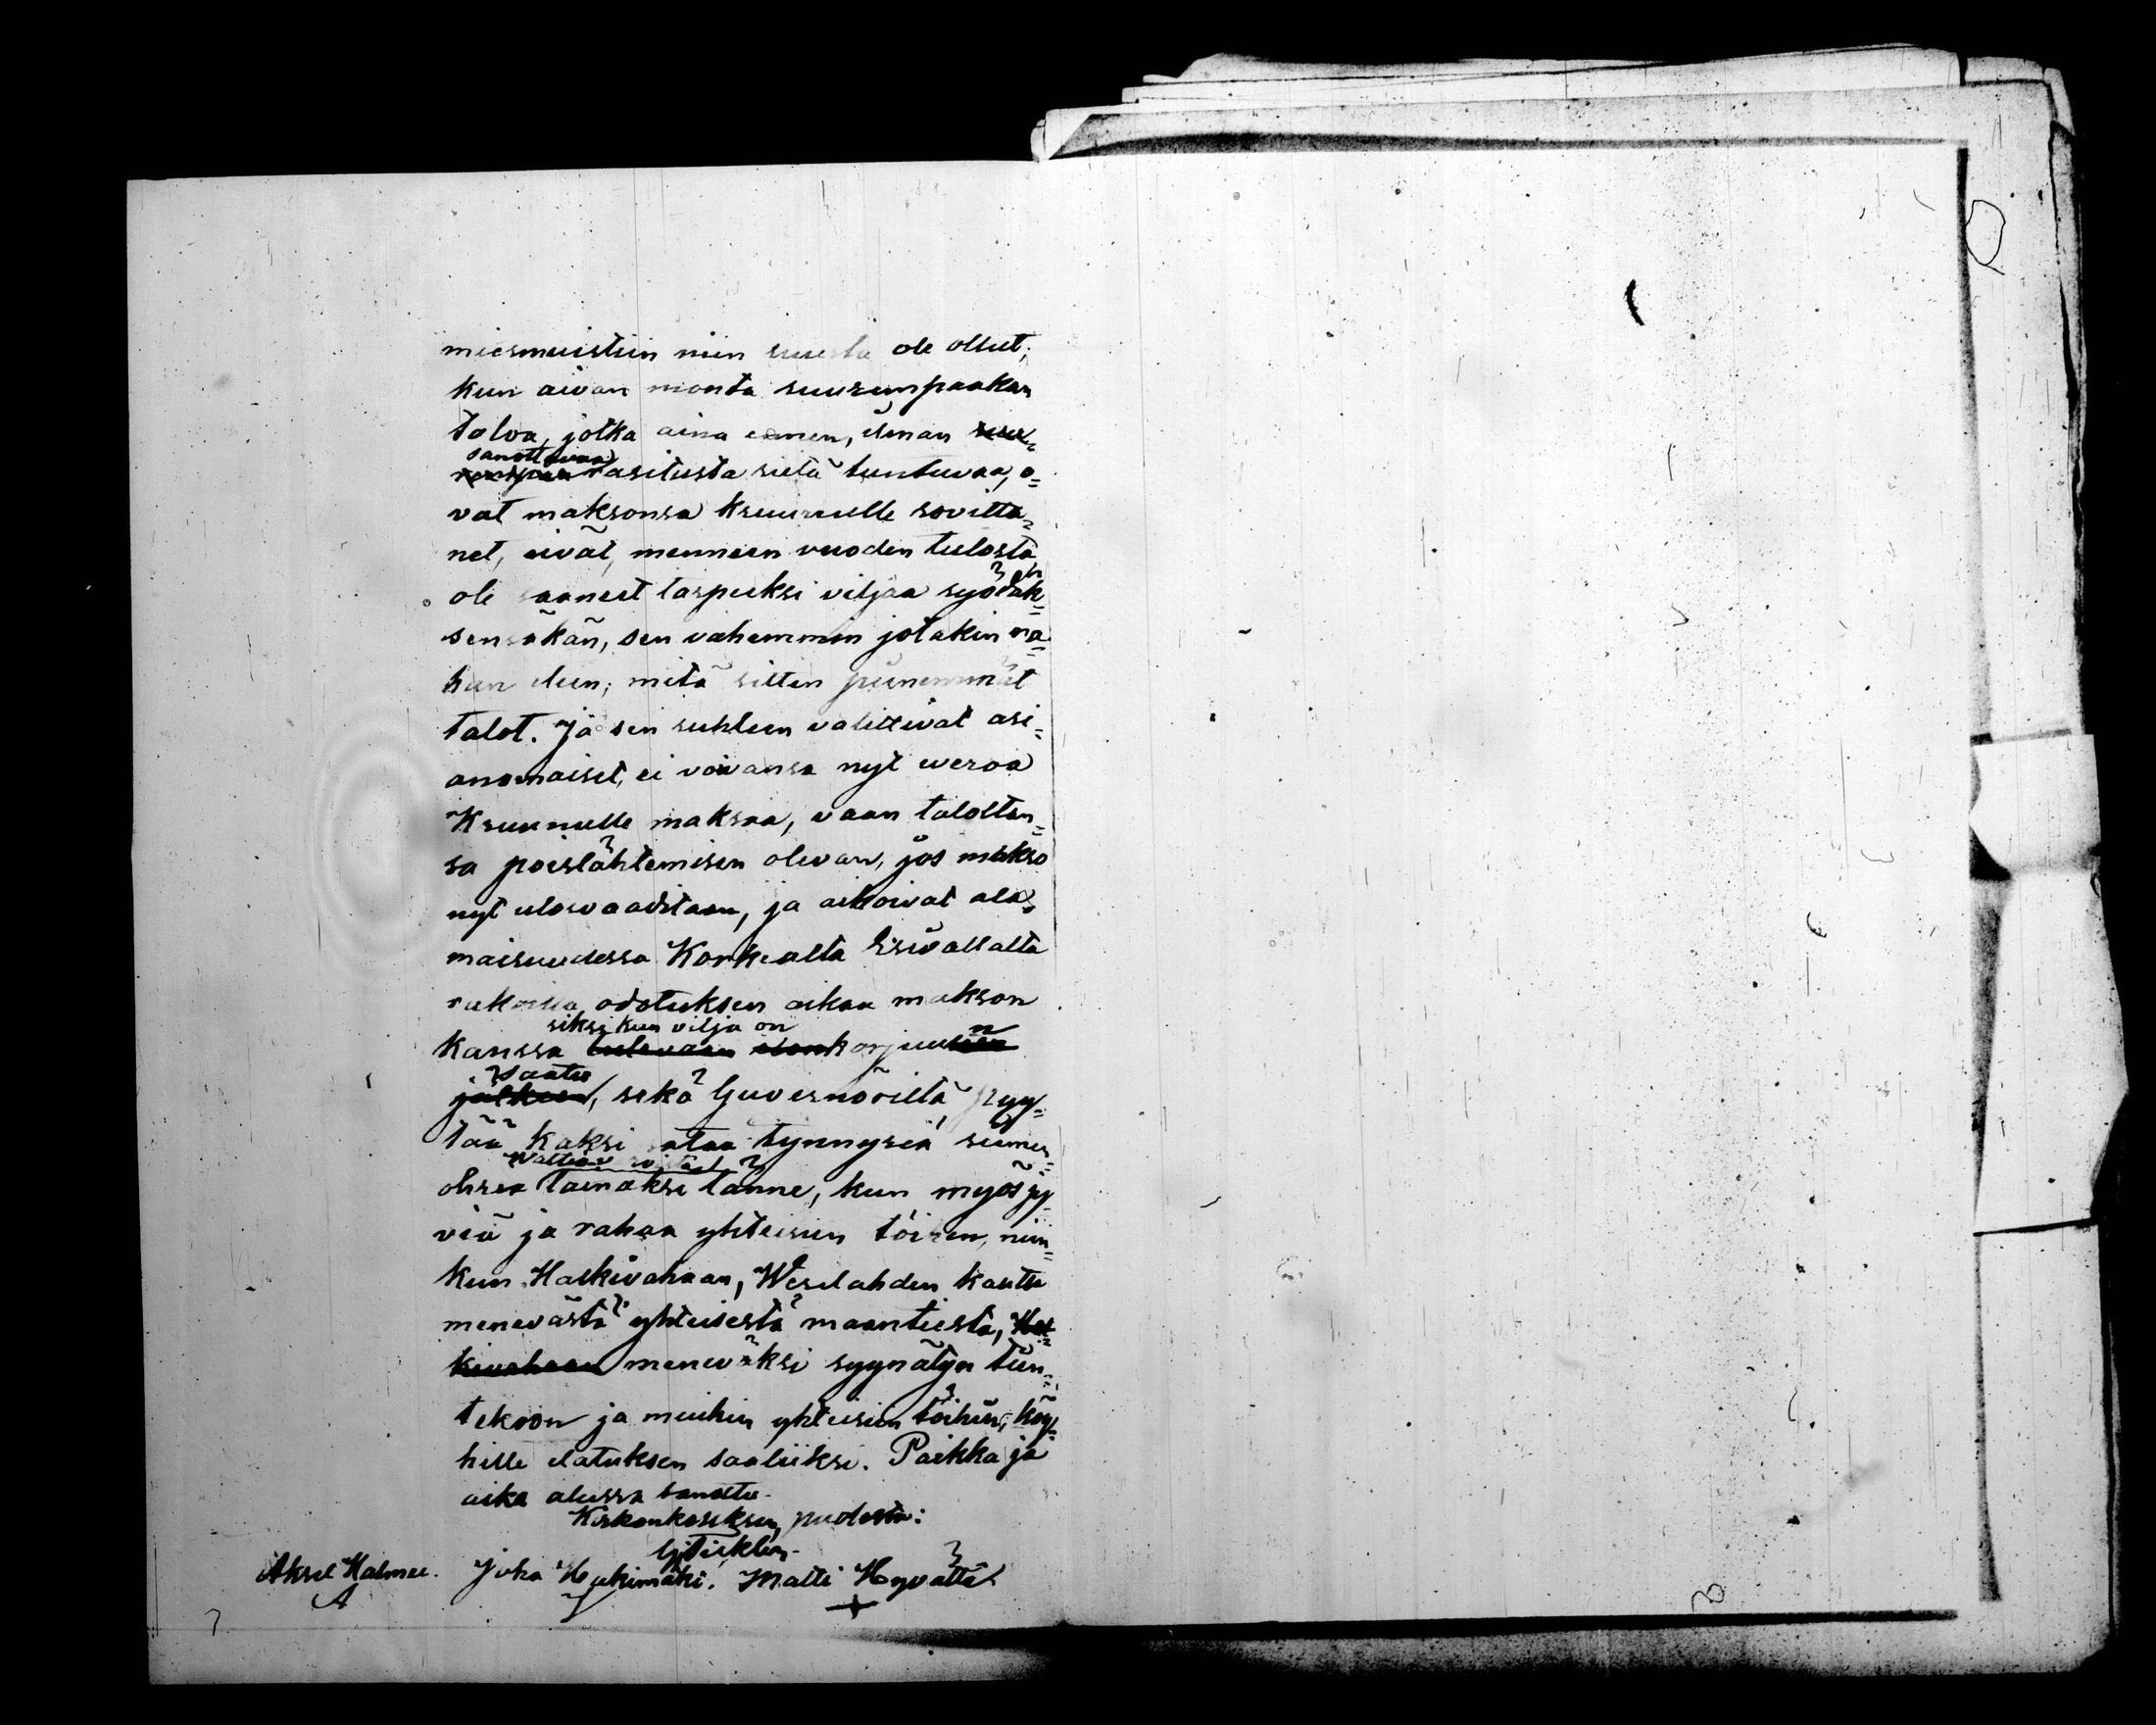 miesmuistiin niin suurta ole ollut;
kun aivan monta suurempaakan
taloa, jotka aina ennen, ilman suu=
sanottavaa
rempaa rasitusta sielä tuntuvaa, o=
vat maksonsa kruunulle sovitta=
net, eivät menneen vuoden tulosta
ole saaneet tarpeeksi viljaa syödäk=
sensäkän, sen vähemmin jotakin ra=
han eteen; mitä sitten pienemmät
talot. Ja sen suhteen valittivat asi=
anomaiset, ei voivansa nyt weroa
Kruunulle maksaa, vaan taloiltan=
sa poislähtemisen olevan, jos makso
nyt ulosvaaditaan, ja aikoivat ala=
maisuudessa Korkealta Esivallalta
rukoilla odotuksen aikaa makson
siksi kun vilja on
kanssa tulevaan elonkorjuusen
saatu
jälkeen, sekä Guvernörillä pyy=
tää kaksi sataa tynnyriä siemen=
ohraa lainaksi tänne, kun myös jy
viä ja rahaa yhteisien töihen, niin=
kun Halkivahaan, Wesilahden kautta
menevästä yhteisestä maantiestä, Hal=
kivahaan meneväksi syynätyn tien=
tekoon ja muihin yhteisien töihin, köy=
hille elatuksen saaliiksi. Paikka ja
aika alussa sanottu.
Kirkonkokouksen puolesta:
Aksel Halmee. Juha Hukimäki. Matti Hyvättä